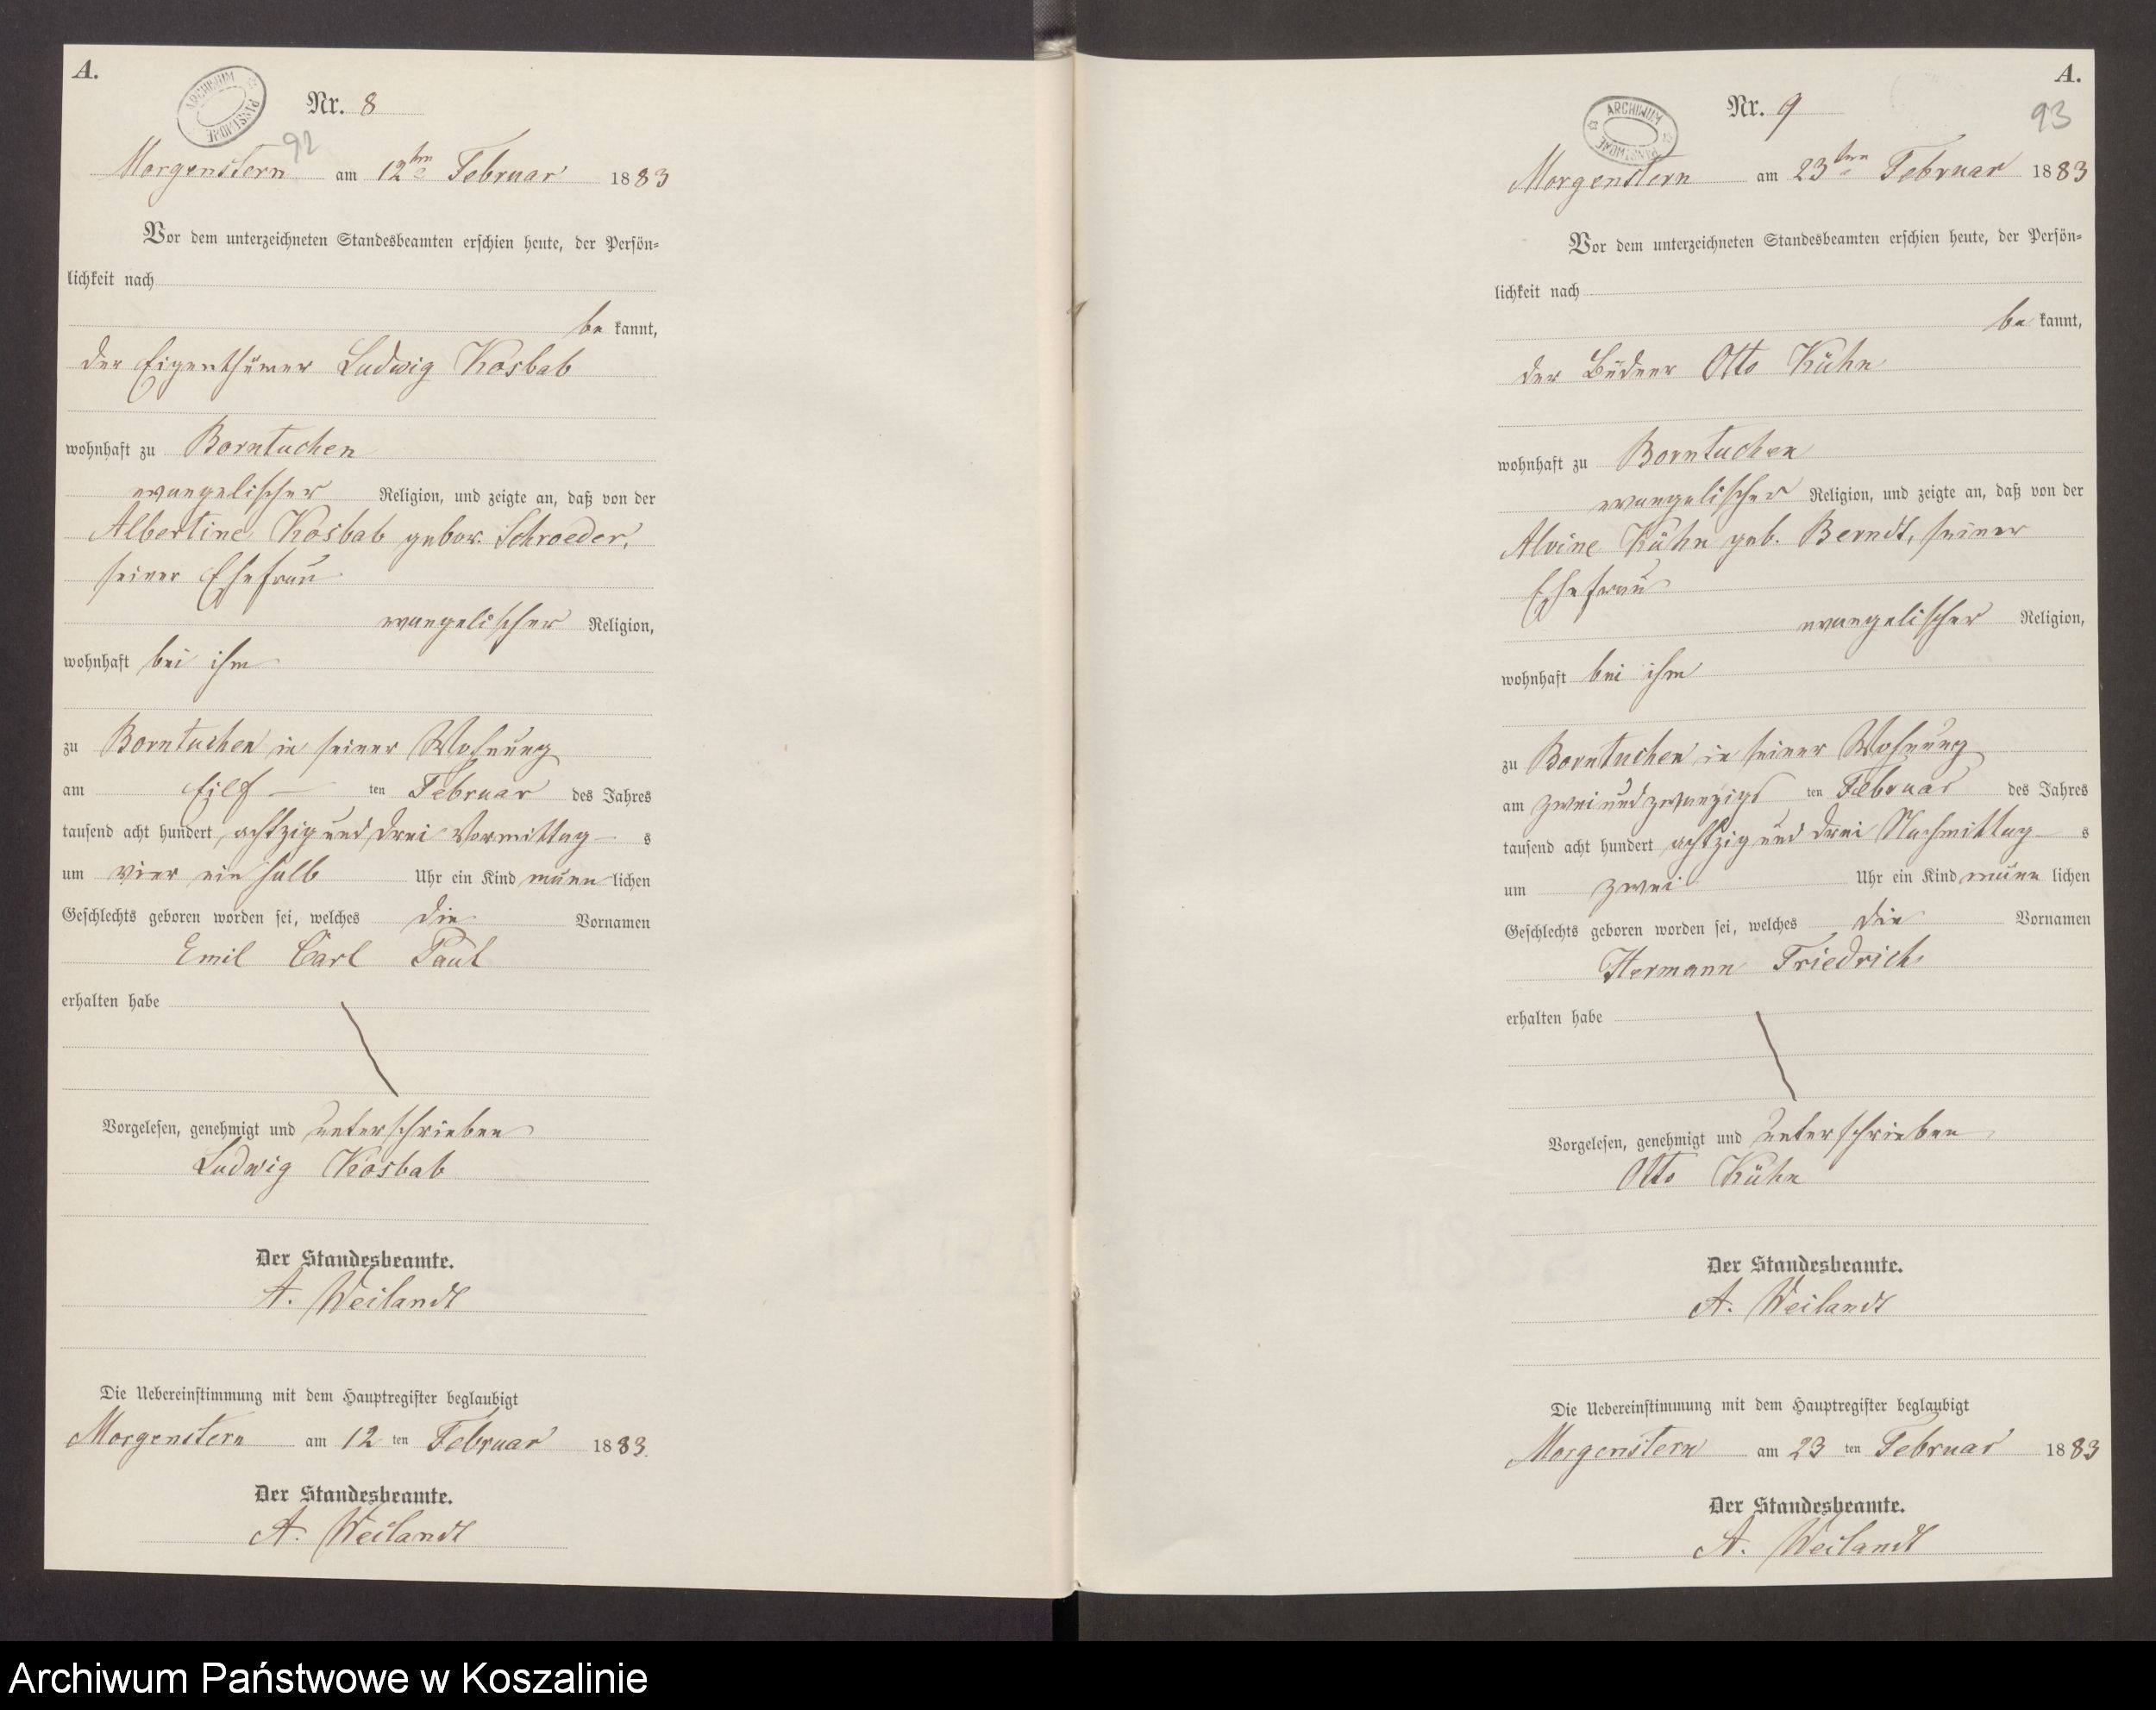 A.
ARCHIWUM PAŃSTWOWE
Nr. 8
92
Morgenstern am 12ten Februar 1883
Vor dem unterzeichneten Standesbeamten erschien heute, der Persön-
lichkeit nach
be kannt,
der Eigenthümer Ludwig Kosbab
wohnhaft zu Borntuchen
evangelischer Religion, und zeigte an, daß von der
Albertine Kosbab gebor. Schroeder,
seiner Ehefrau
evangelischer Religion,
wohnhaft bei ihm
zu Borntuchen in seiner Wohnung
am Eilf ten Februar des Jahres
tausend acht hundert achtzig und drei Vormittag s
um vier ein halb Uhr ein Kind männ lichen
Geschlechts geboren worden sei, welches die Vornamen
Emil Carl Paul
erhalten habe
Vorgelesen, genehmigt und unterschrieben
Ludwig Kosbab
Der Standesbeamte.
A. Weilandt
Die Uebereinstimmung mit dem Hauptregister beglaubigt
Morgenstern am 12 ten Februar 1883.
Der Standesbeamte.
A. Weilandt
A.
ARCHIWUM PAŃSTWOWE
Nr. 9
93
Morgenstern am 23ten Februar 1883
Vor dem unterzeichneten Standesbeamten erschien heute, der Persön-
lichkeit nach
be kannt,
der Büdner Otto Kühn
wohnhaft zu Borntuchen
evangelischer Religion, und zeigte an, daß von der
Alvine Kühn geb. Berndt, seiner
Ehefrau
evangelischer Religion,
wohnhaft bei ihm
zu Borntuchen in seiner Wohnung
am zwei und zwanzigs ten Februar des Jahres
tausend acht hundert achtzig und drei Nachmittag s
um zwei Uhr ein Kind männ lichen
Geschlechts geboren worden sei, welches die Vornamen
Hermann Friedrich
erhalten habe
Vorgelesen, genehmigt und unterschrieben
Otto Kühn
Der Standesbeamte.
A. Weilandt
Die Uebereinstimmung mit dem Hauptregister beglaubigt
Morgenstern am 23 ten Februar 1883
Der Standesbeamte.
A. Weilandt
Archiwum Państwowe w Koszalinie